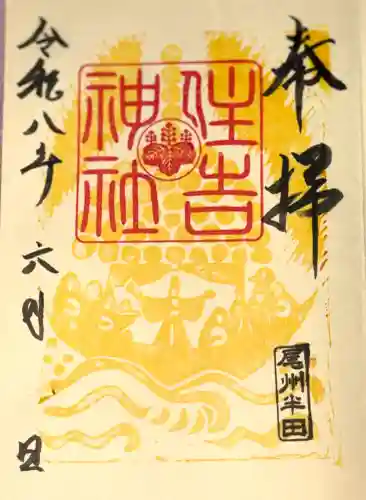 奉拝
住吉
神社
尾州半田
令和八年六月 日